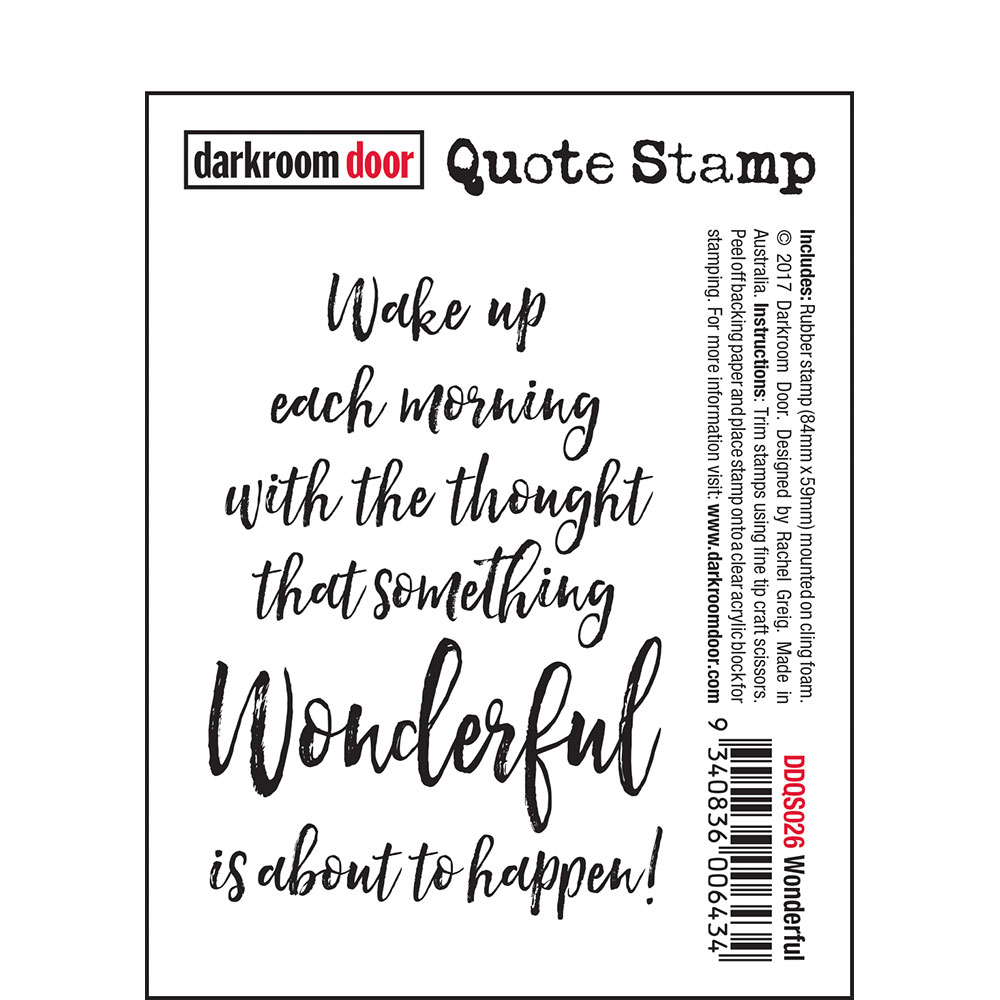 darkroom door Quote Stamp
Wake up
each morning
with the thought
that something
Wonderful
is about to happen!
Includes: Rubber stamp (84mm x 59mm) mounted on cling foam.
© 2017 Darkroom Door. Designed by Rachel Greig. Made in
Australia. Instructions: Trim stamps using fine tip craft scissors.
Peel off backing paper and place stamp onto a clear acrylic block for
stamping. For more information visit: www.darkroomdoor.com
DDQS026 Wonderful
9 340836 006434